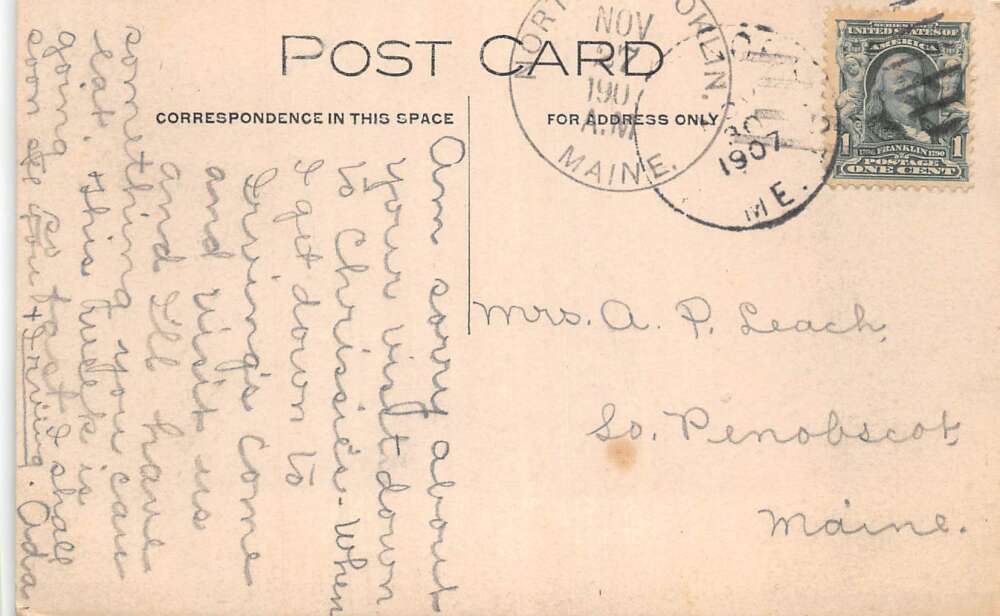 POST CARD
CORRESPONDENCE IN THIS SPACE
FOR ADDRESS ONLY
NOV
1907
A.M.
MAINE.
30
1907
ME.
SERIES 1902
UNITED STATES OF
AMERICA
1 FRANKLIN 1
POSTAGE
ONE CENT
Am sorry about
your visit down
to Chrissie's. When
I get down to
Irving's Come
and visit us
and I'll have
something you can
eat. This week is
going so fast I shall
soon see you & Irving. Ada
Mrs. A. P. Leach,
So. Penobscot
Maine.